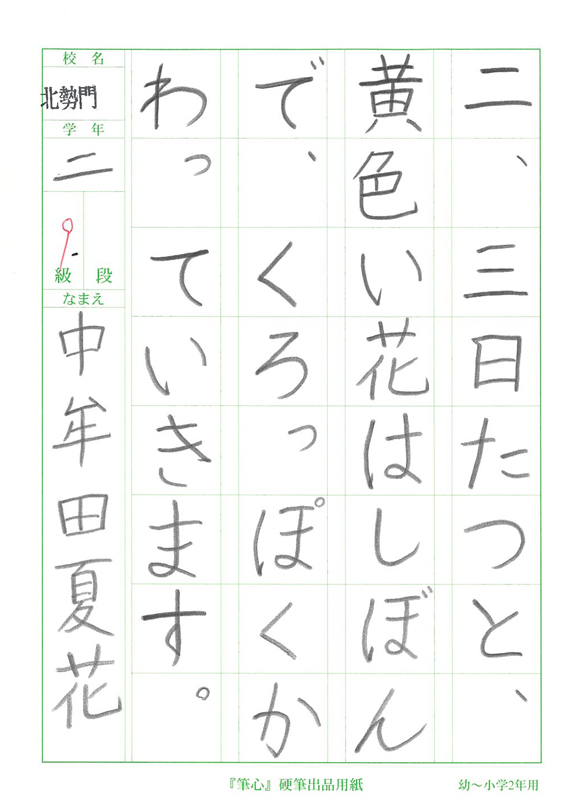 二、三日たつと、
黄色い花はしぼん
で、くろっぽくか
わっていきます。
校名
北勢門
学年
二
9.
級 段
なまえ
中牟田夏花
『筆心』硬筆出品用紙
幼〜小学2年用